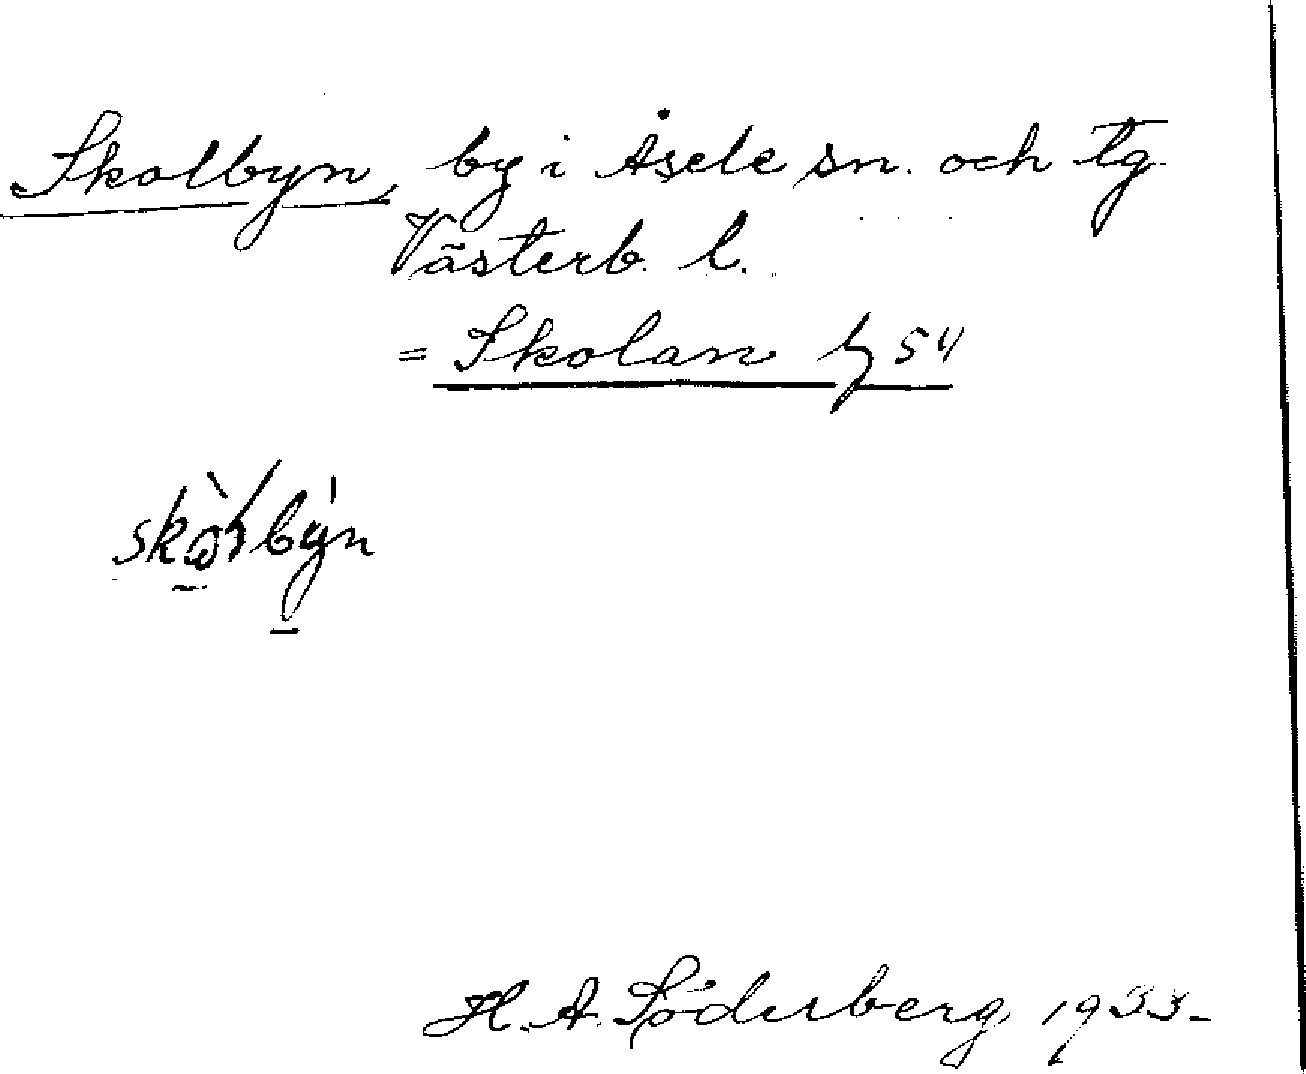 Skolbyn, by i Åsele sn. och tg
Västerb. l.
= Skolan 54
H. A. Söderberg 1933-